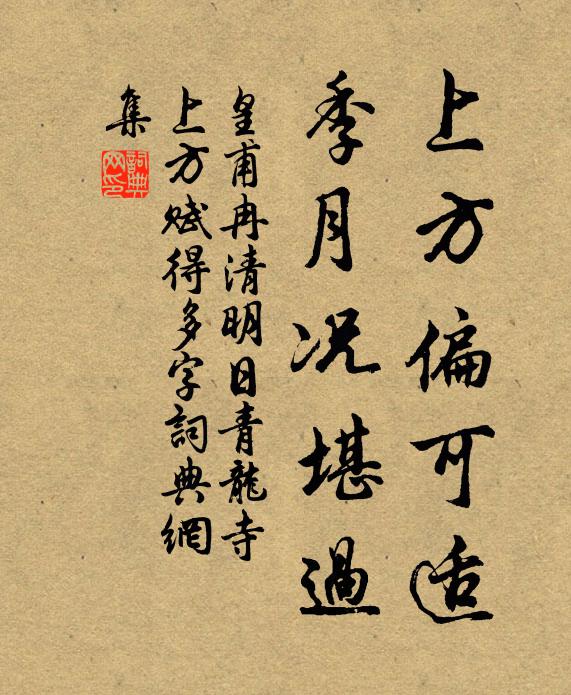 上方偏可适
季月况堪過
皇甫冉清明日青龍寺
上方赋得多字詞典網
集
詞典網印